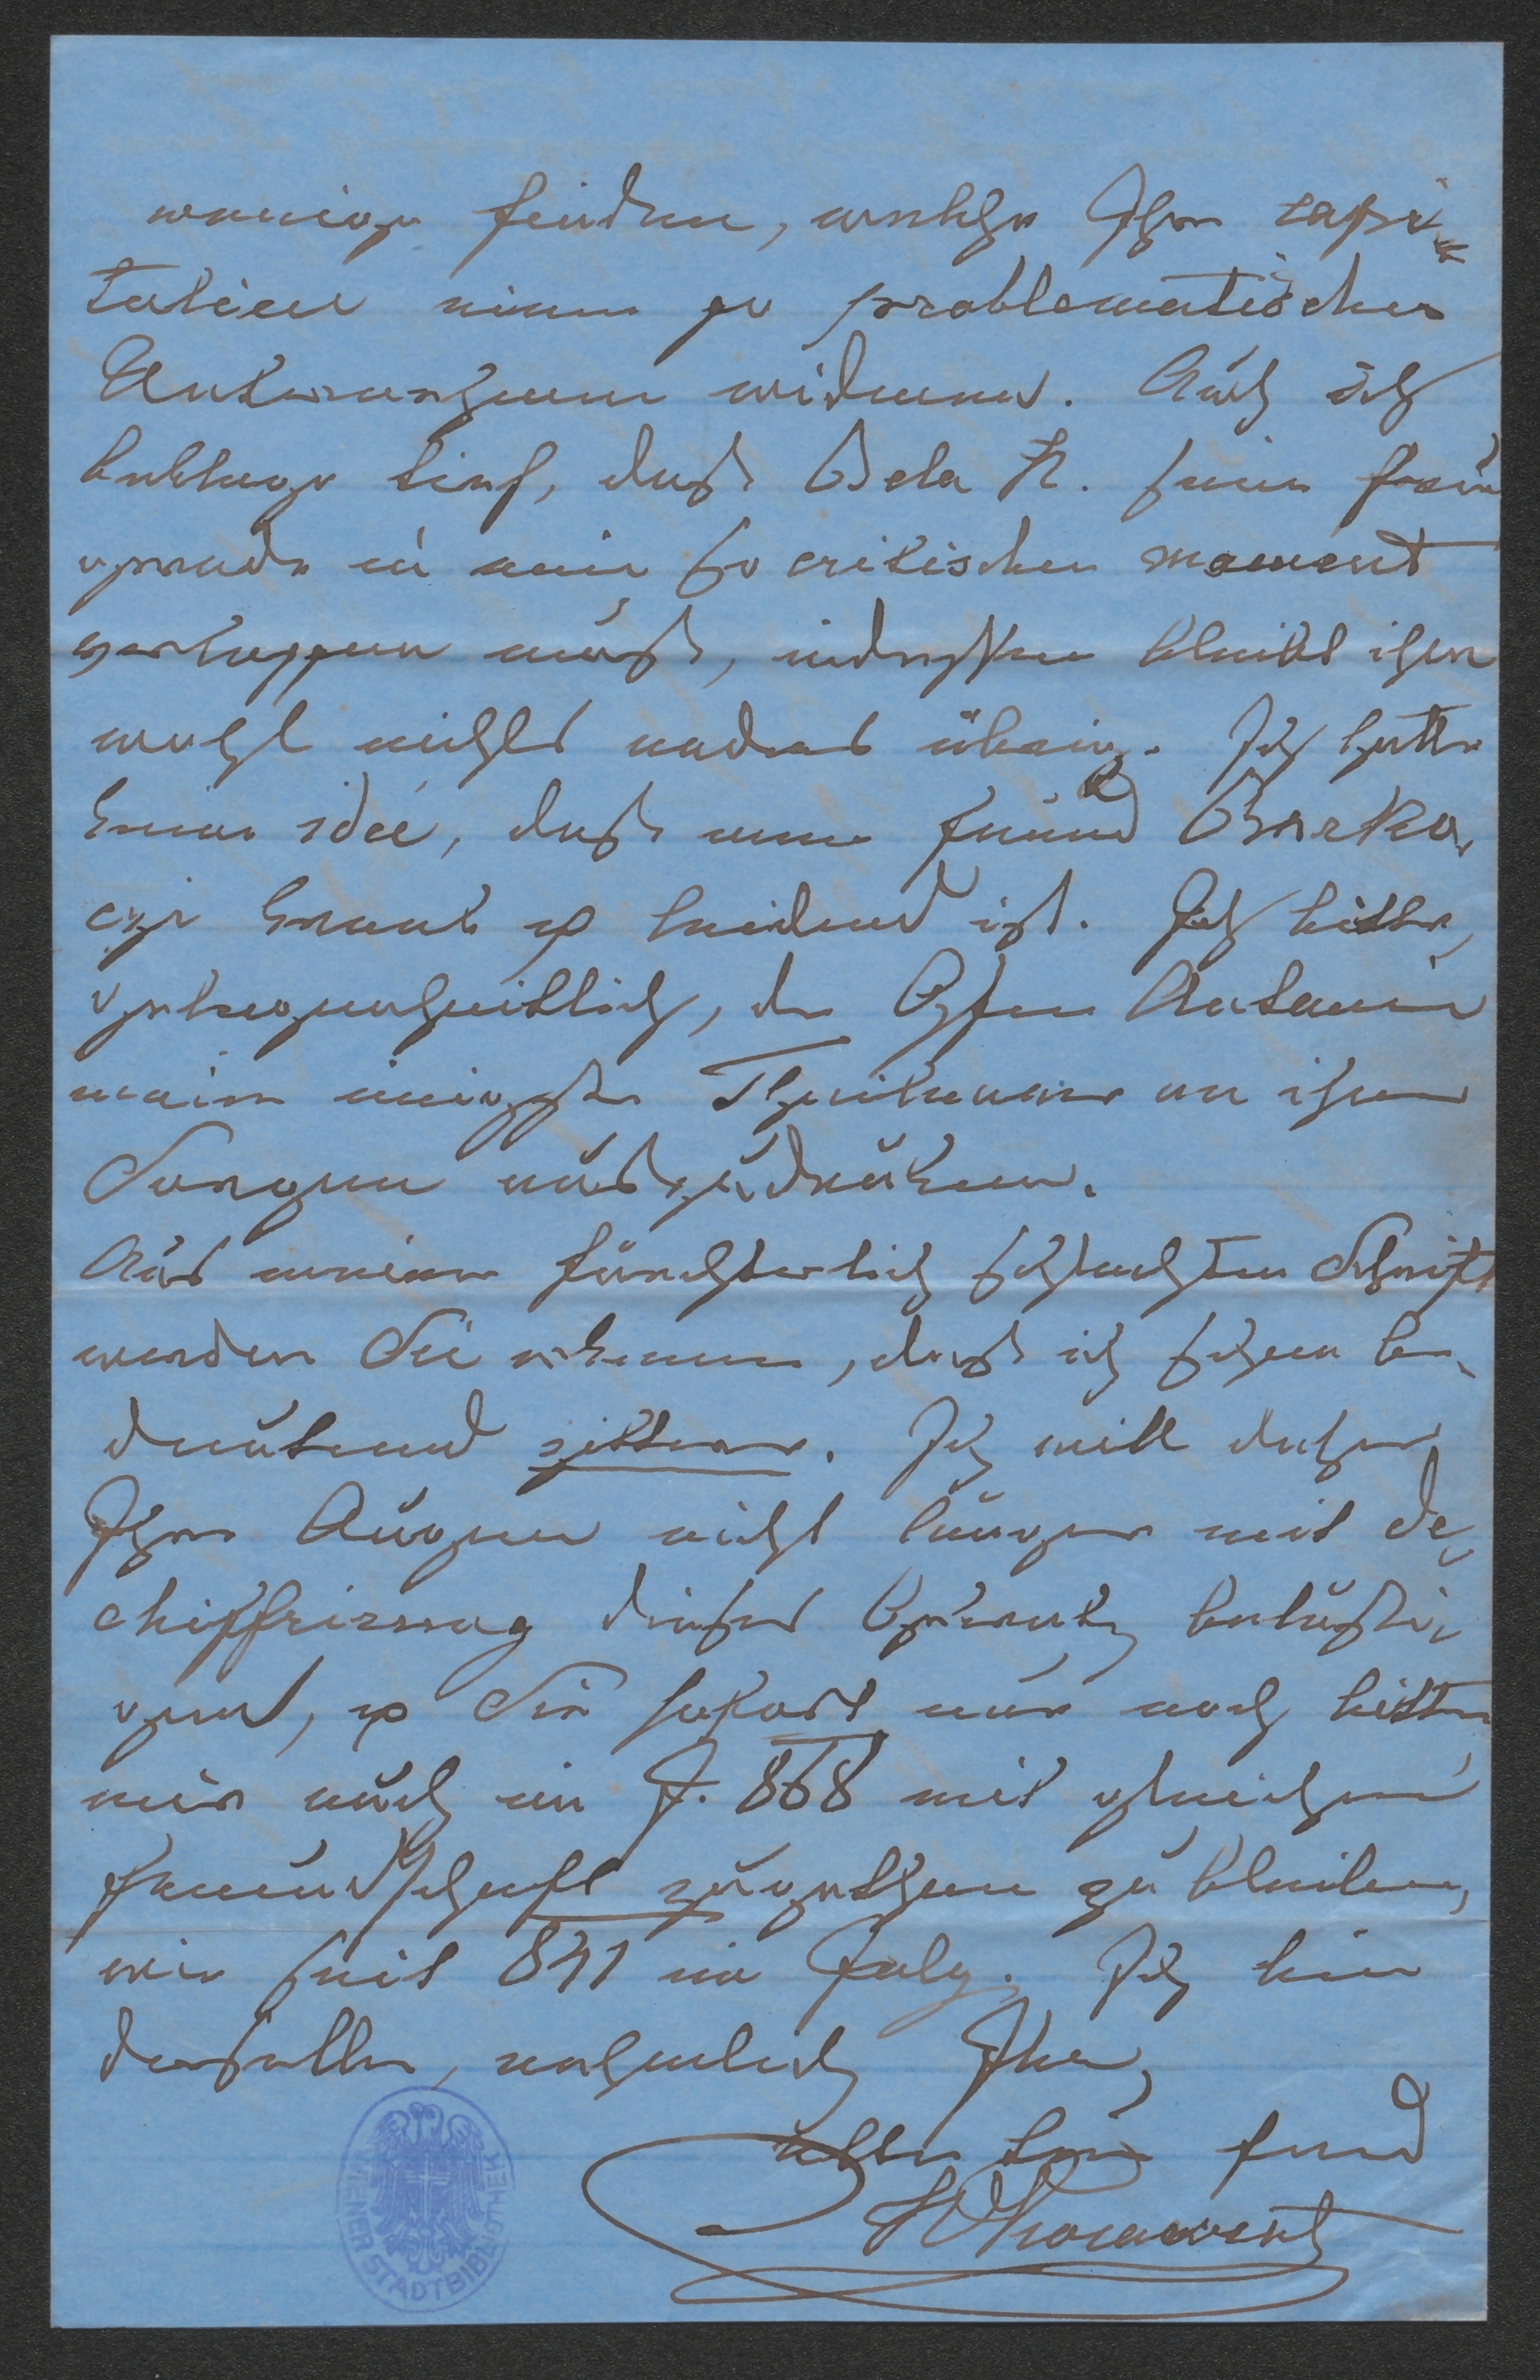 wenige finden, welche Ihre capi-
talien einem so problematischen
Unternehmen widmen. Auch ich
beklage tief, daß Bela K. seine Frau
gerade in ein so critischen moment
verlassen muß, indessen bleibt ihm
wohl nichts anders übrig. Ich hatte
keine idée, daß unser Freund Barko,
czy krank & leidend ist. Ich bitte,
gelegenheitlich, der Gfin Antonie
meine innigste Theilname an ihren
Sorgen auszudrüken.
Aus meiner fürchterlich schlechten Schrift
werden Sie erkennen, daß ich schon be-
deutend zittere. Ich will daher
Ihre Augen nicht länger mit de-
chiffrirung dieses belästi-
gen, & Sie sofort nur noch bitten
mir auch im J. 868 mit gleicher
Freundschaft zugethan zu bleiben,
wie seit 841 im July. Ich bin
derselbe, nahmlich Ihr
alter treu Freund
WIENER STADTBIBLIOTHEK